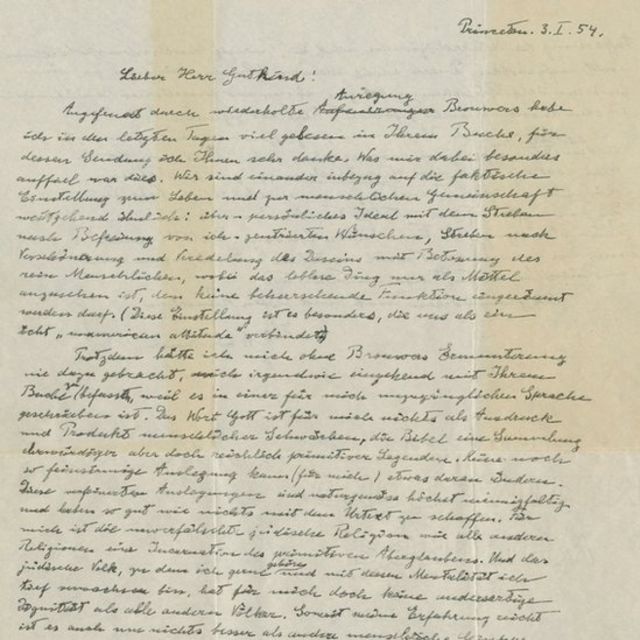 Princeton. 3. I. 54.
Lieber Herr Gutkind!
Anregung
Angefeuert durch wiederholte Brouwers habe
ich in den letzten Tagen viel gelesen in Ihrem Buche, für
dessen Sendung ich Ihnen sehr danke. Was mir dabei besonders
auffiel war dies. Wir sind einander inbezug auf die faktische
Einstellung zum Leben und zur menschlichen Gemeinschaft
weitgehend ähnlich: über-persönliches Ideal mit dem Streben
nach Befreiung von ich-zentrierten Wünschen, Streben nach
Verschönerung und Veredelung des Daseins mit Betonung des
rein Menschlichen, wobei das leblose Ding nur als Mittel
anzusehen ist, dem keine beherrschende Funktion eingeräumt
werden darf. (Diese Einstellung ist es besonders, die uns als ein
echt „unamerican attitude" verbindet)
Trotzdem hätte ich mich ohne Brouwers Ermunterung
nie dazu gebracht, mich irgendwie eingehend mit Ihrem
Buche zu befassen, weil es in einer für mich unzugänglichen Sprache
geschrieben ist. Das Wort Gott ist für mich nichts als Ausdruck
und Produkt menschlicher Schwächen, die Bibel eine Sammlung
ehrwürdiger aber doch reichlich primitiver Legenden. Keine noch
so feinsinnige Auslegung kann (für mich) etwas daran ändern.
Diese verfeinerten Auslegungen sind naturgemäss höchst mannigfaltig
und haben so gut wie nichts mit dem Urtext zu schaffen. Für
mich ist die unverfälschte jüdische Religion wie alle anderen
Religionen eine Incarnation des primitiven Aberglaubens. Und das
jüdische Volk, zu dem ich gern gehöre und mit dessen Mentalität ich
tief verwachsen bin, hat für mich doch keine andersartige
Dignität als alle anderen Völker. Soweit meine Erfahrung reicht
ist es auch um nichts besser als andere menschliche